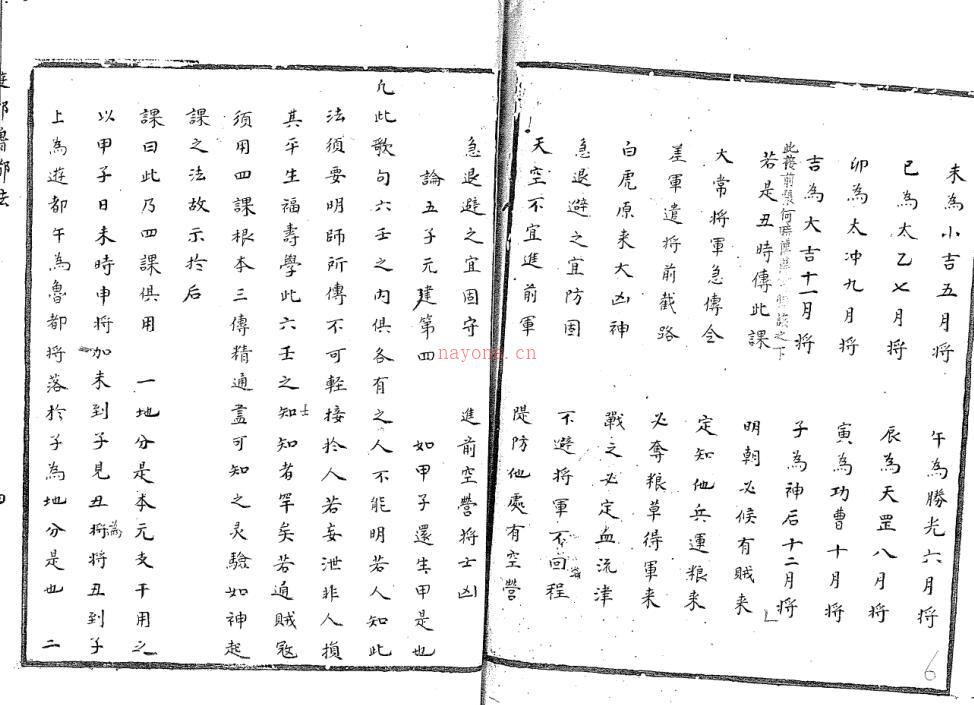 未為小吉五月將　午為勝光六月將
巳為太乙七月將　辰為天罡八月將
卯為太冲九月將　寅為功曹十月將
吉為大吉十一月將　子為神后十二月將
此
前
何
之下
若是丑時傳此課　明朝必候有賊來
大常將軍急傳令　定知他兵運粮來
差軍遣將前截路　必奪粮草得軍來
白虎原來大凶神　戰之必定血流津
急退避之宜防固　不避將軍不回程
天空不宜進前軍　隄防他處有空營
6
急退避之宜固守　進前空營將士凶
論五子元建第四　如甲子還生甲是也
凡此歌句六壬之內俱各有之人不能明若人知此
法須要明師所傳不可輕接於人若妄泄非人損
其平生福壽學此六壬之知士知者罕矣若遇賊冦
須用四課根本三傳精通盡可知之灵驗如神起
課之法故示於后
課曰此乃四課俱用　一地分是本元支干用之
以甲子日未時申將加未到子見丑將為將丑到子
上為遊都午為魯都將落於子為地分是也　二
遊都魯都法
四
nayona.cn